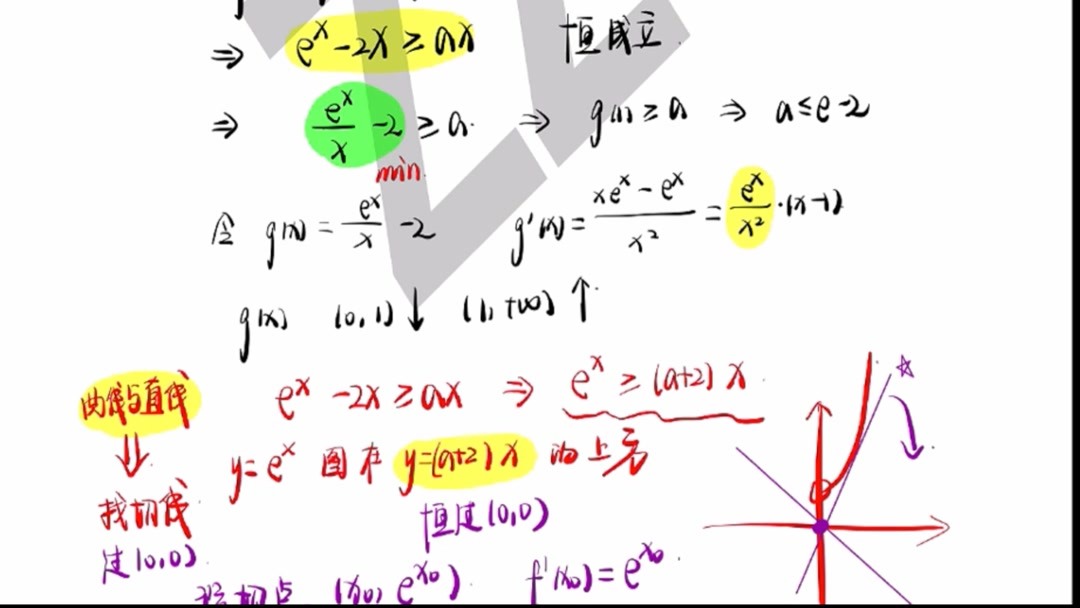 ⇒ eˣ-2x ≥ ax 恒成立
⇒ eˣ/x -2 ≥ a. ⇒ g(1) ≥ a ⇒ a ≤ e-2
min
令 g(x) = eˣ/x -2 g'(x) = (xeˣ-eˣ)/x² = eˣ/x² ·(x-1)
g(x) (0,1)↓ (1,+∞)↑
曲线与直线 eˣ-2x ≥ ax ⇒ eˣ ≥ (a+2)x
⇓ y=eˣ 图在 y=(a+2)x 的上方
找切线 恒过(0,0)
过(0,0)
设切点 (x₀, e^{x₀}) f'(x₀) = e^{x₀}